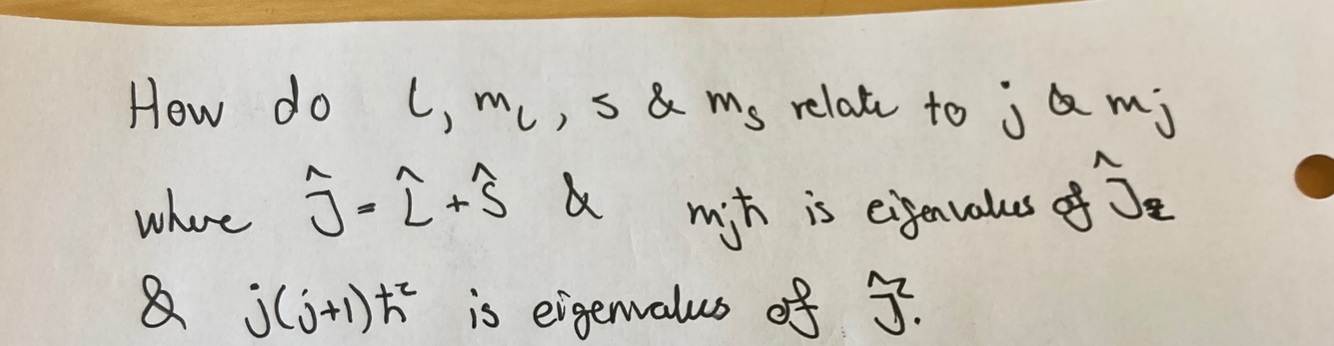 How do l, mₗ, s & mₛ relate to j & mⱼ
where Ĵ = L̂ + Ŝ & mⱼħ is eigenvalues of Ĵz
& j(j+1)ħ² is eigenvalues of Ĵ².